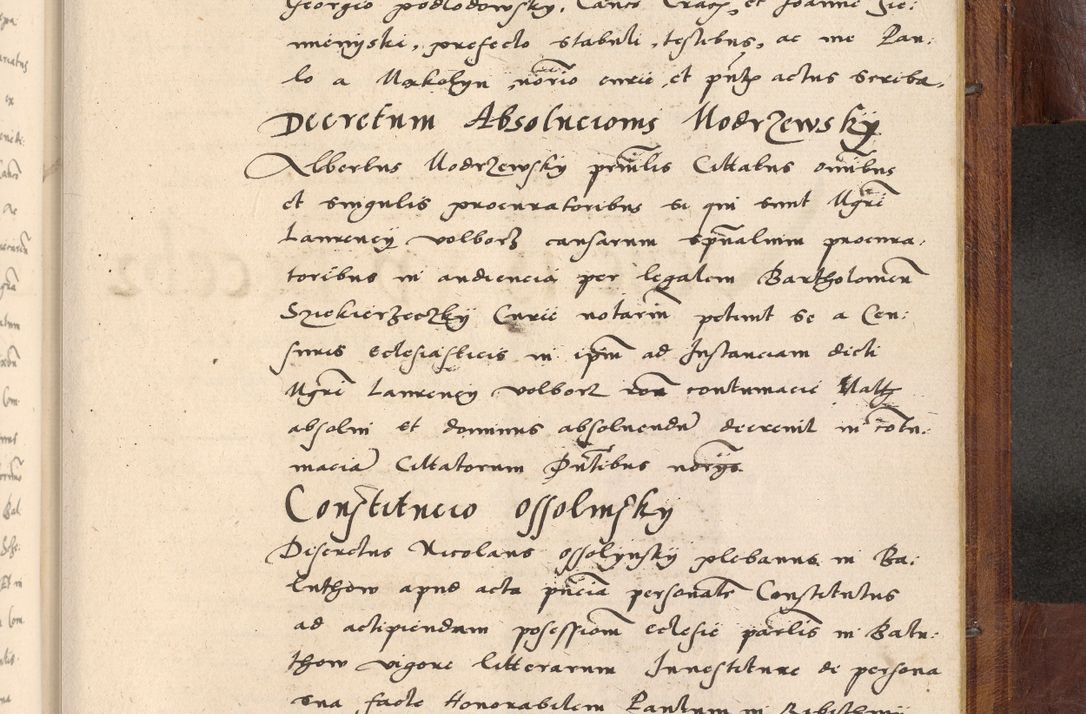 Georgio podlodowsky, Canco Crac, et Joanne Sie:
mienyski, prefecto stabuli, testibus, ac me Pau:
lo a Mακolyn notrio curie et pntz actus scriba,
Decretum Absolucionis Modrzewsky
Albertus Modrzewsky primilis Cittatus omnibus
et singulis procuratoribus si qui sunt Mgri
Laurency volborz causarum spnalium procura:
toribus in audiencia per legalem Bartholomeu
Sziekierzeczky Curie notarin petiint se a Cen:
suris eclesiasticis in ipm ad Instanciam dicti
Mgri Laurency volborz contumacie
absolui et dominus absoluendu decreuit in cotu:
macia Cittatorum Pntibus norys
Constitucio Ossolinsky
Discretus Nicolaus Ossolynsky plebanus in Ba:
luthow apud acta pncia personale Constitutus
ad actipiendam posessiom eclesie parlis in Balu:
thow vigore litterarum Inuestiture de persona
sua facte Honorabilem Paulum in